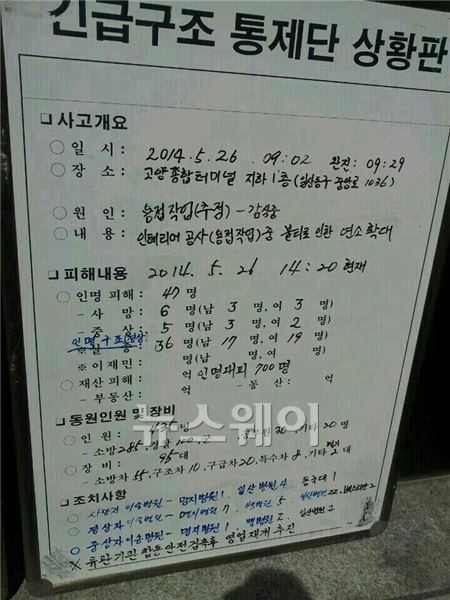 긴급구조 통제단 상황판
□ 사고개요
○ 일 시 : 2014. 5. 26 09:02 완진: 09:29
○ 장 소 : 고양종합터미널 지하1층 (일산동구 중앙로 1036)
○ 원 인 : 용접작업(추정) - 감식중
○ 내 용 : 인테리어 공사(용접작업)중 불티로 인한 연소 확대
□ 피해내용 2014. 5. 26 14:20 현재
○ 인명 피해 : 47 명
- 사 망 : 6 명(남 3 명, 여 3 명)
- 중 상 : 5 명(남 3 명, 여 2 명)
인명구조 36 명(남 17 명, 여 19 명)
※ 이재민 : 명(남 명, 여 명)
○ 재산 피해 : 억 인명대피 700명
- 부동산 : 억 - 동산 : 억
□ 동원인원 및 장비
○ 인 원 : 명
- 소방 285, 경찰 100, 군 30, 기타 20 명
○ 장 비 : 95 대
- 소방차 55, 구조차 10, 구급차 20, 특수차 8, 기타 2 대
□ 조치사항
○ 사망자 이송병원 - 명지병원 1. 일산병원 4. 동국대 1
○ 이송병원 - 명지병원 7. 백병원 5.
○ 중상자 이송병원 - 명지병원 1. 백병원 2. 일산병원 2
※ 유관기관 합동안전점검후 영업재개 추진
뉴스웨이